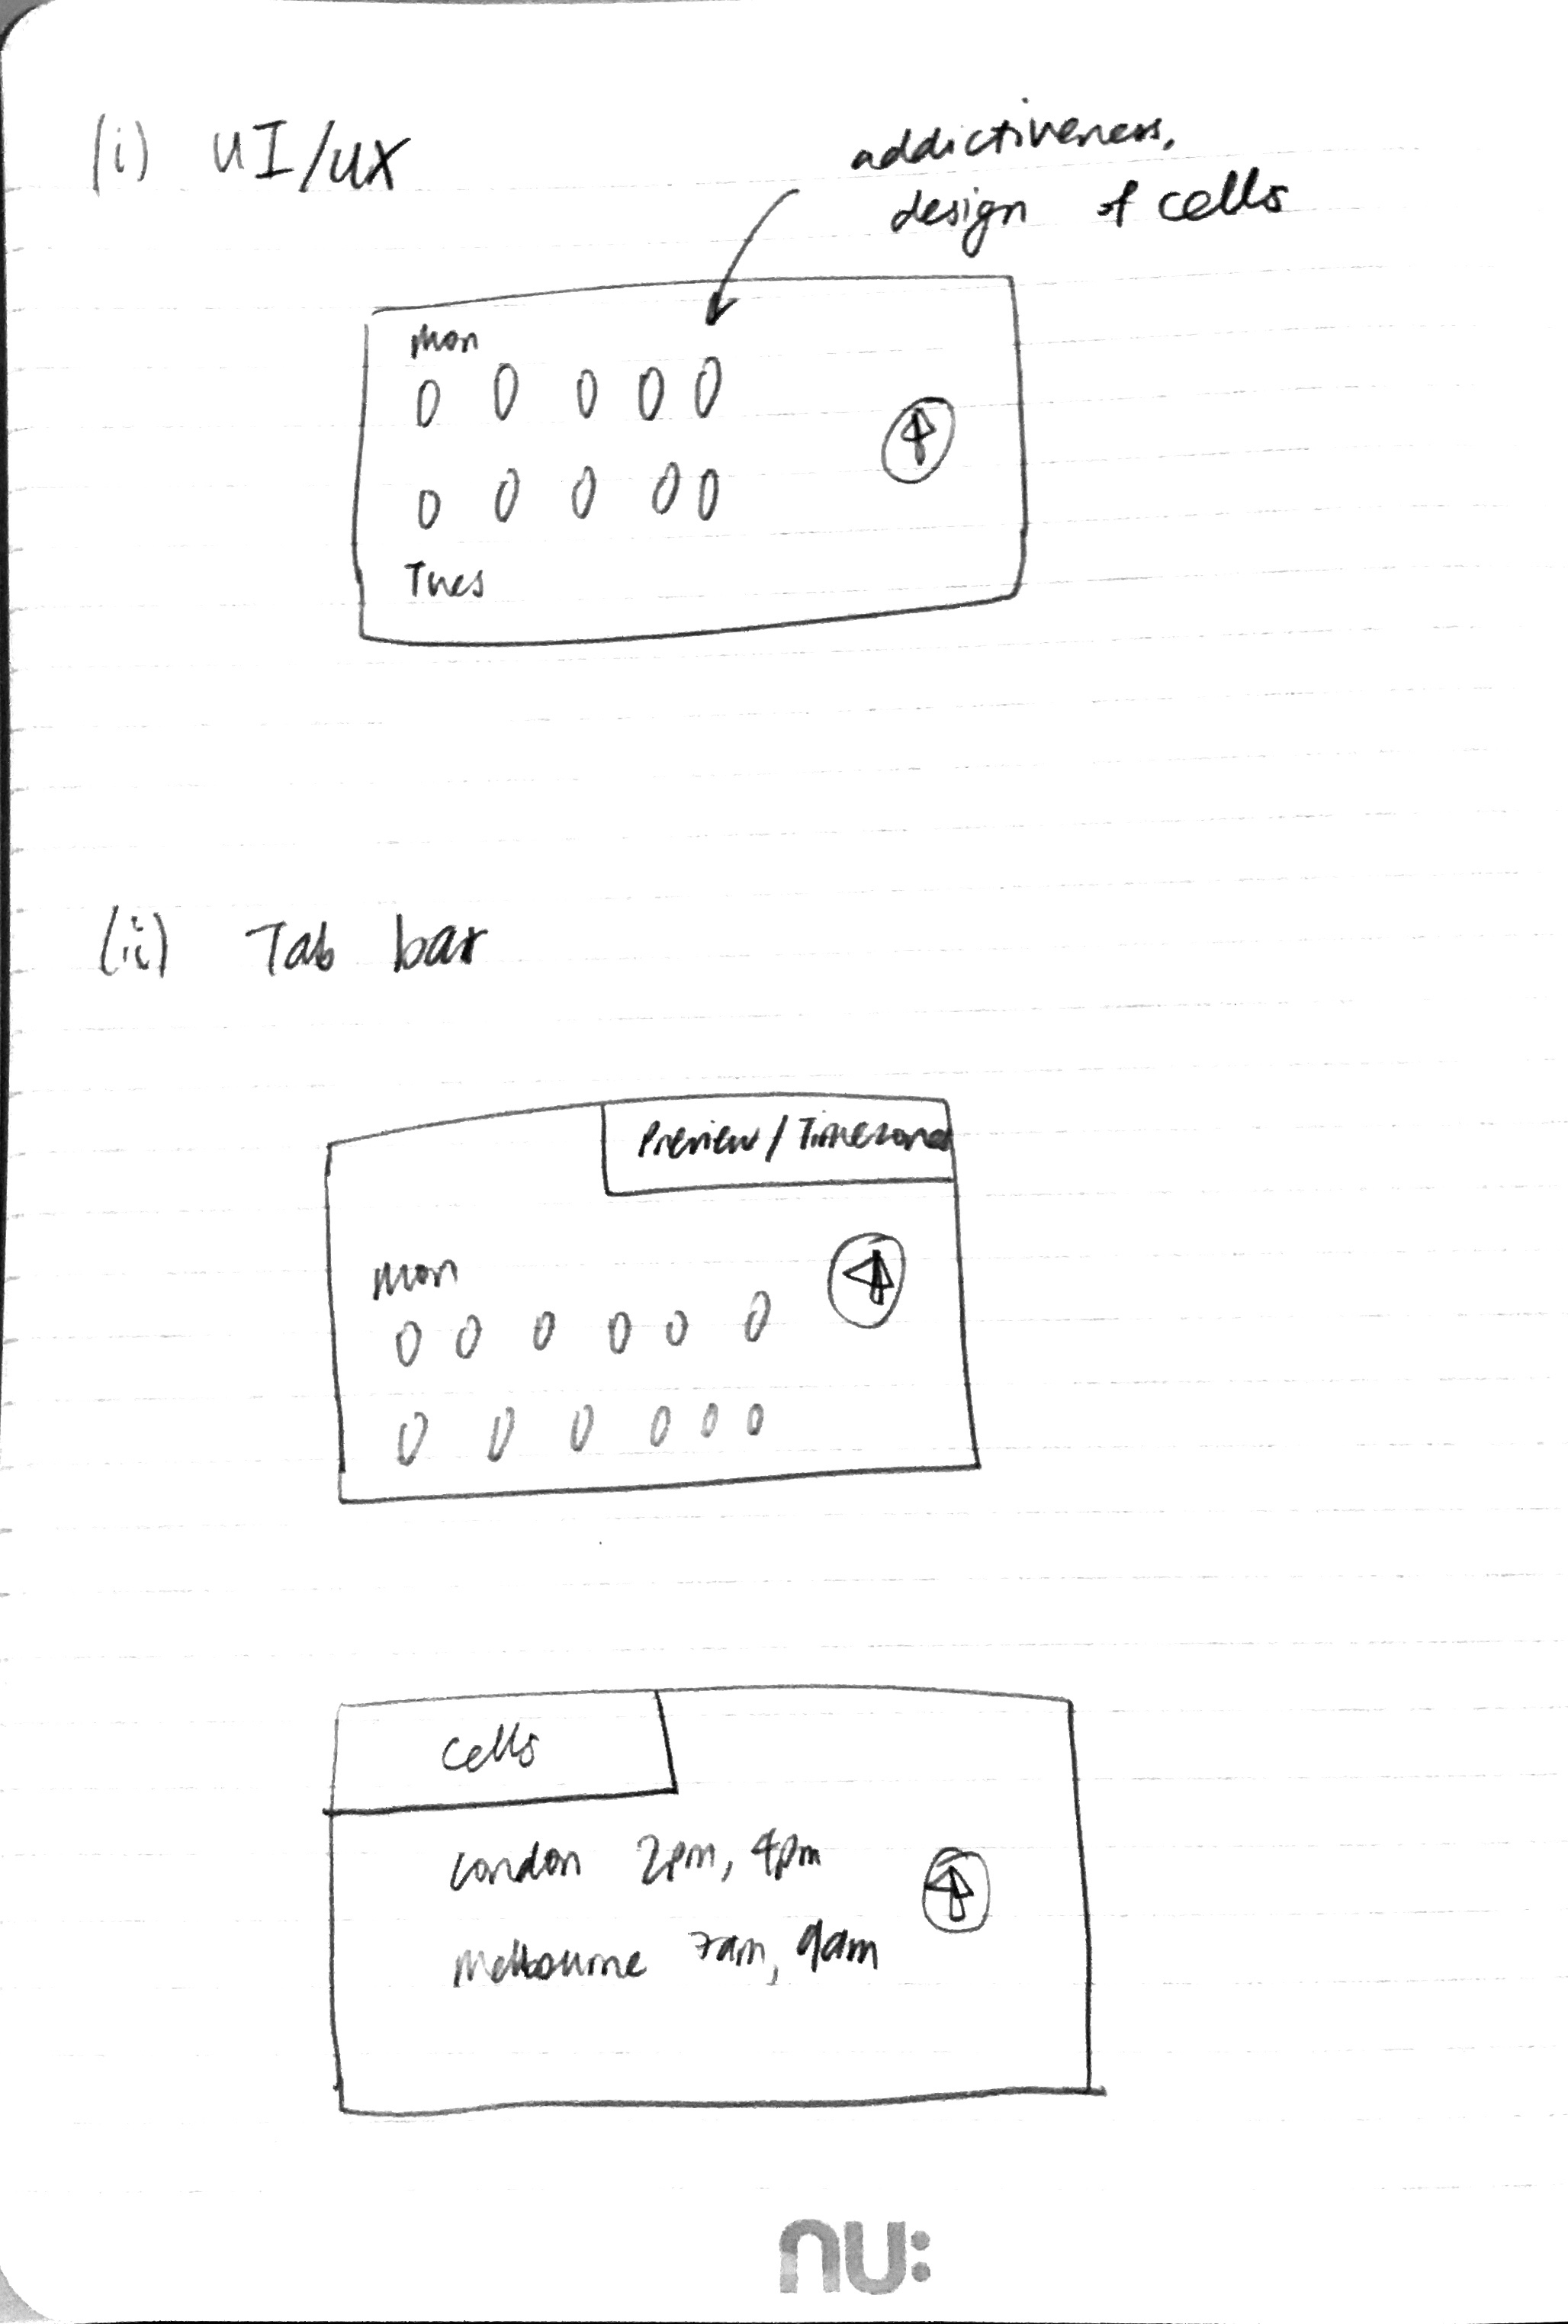 (i) UI/UX
addictiveness,
design of cells
Mon
0 0 0 0 0
0 0 0 0 0
Tues
(ii) Tab bar
Preview / Timezones
Mon
0 0 0 0 0 0
0 0 0 0 0 0
cells
London 2pm, 4pm
Melbourne 7am, 9am
nu: